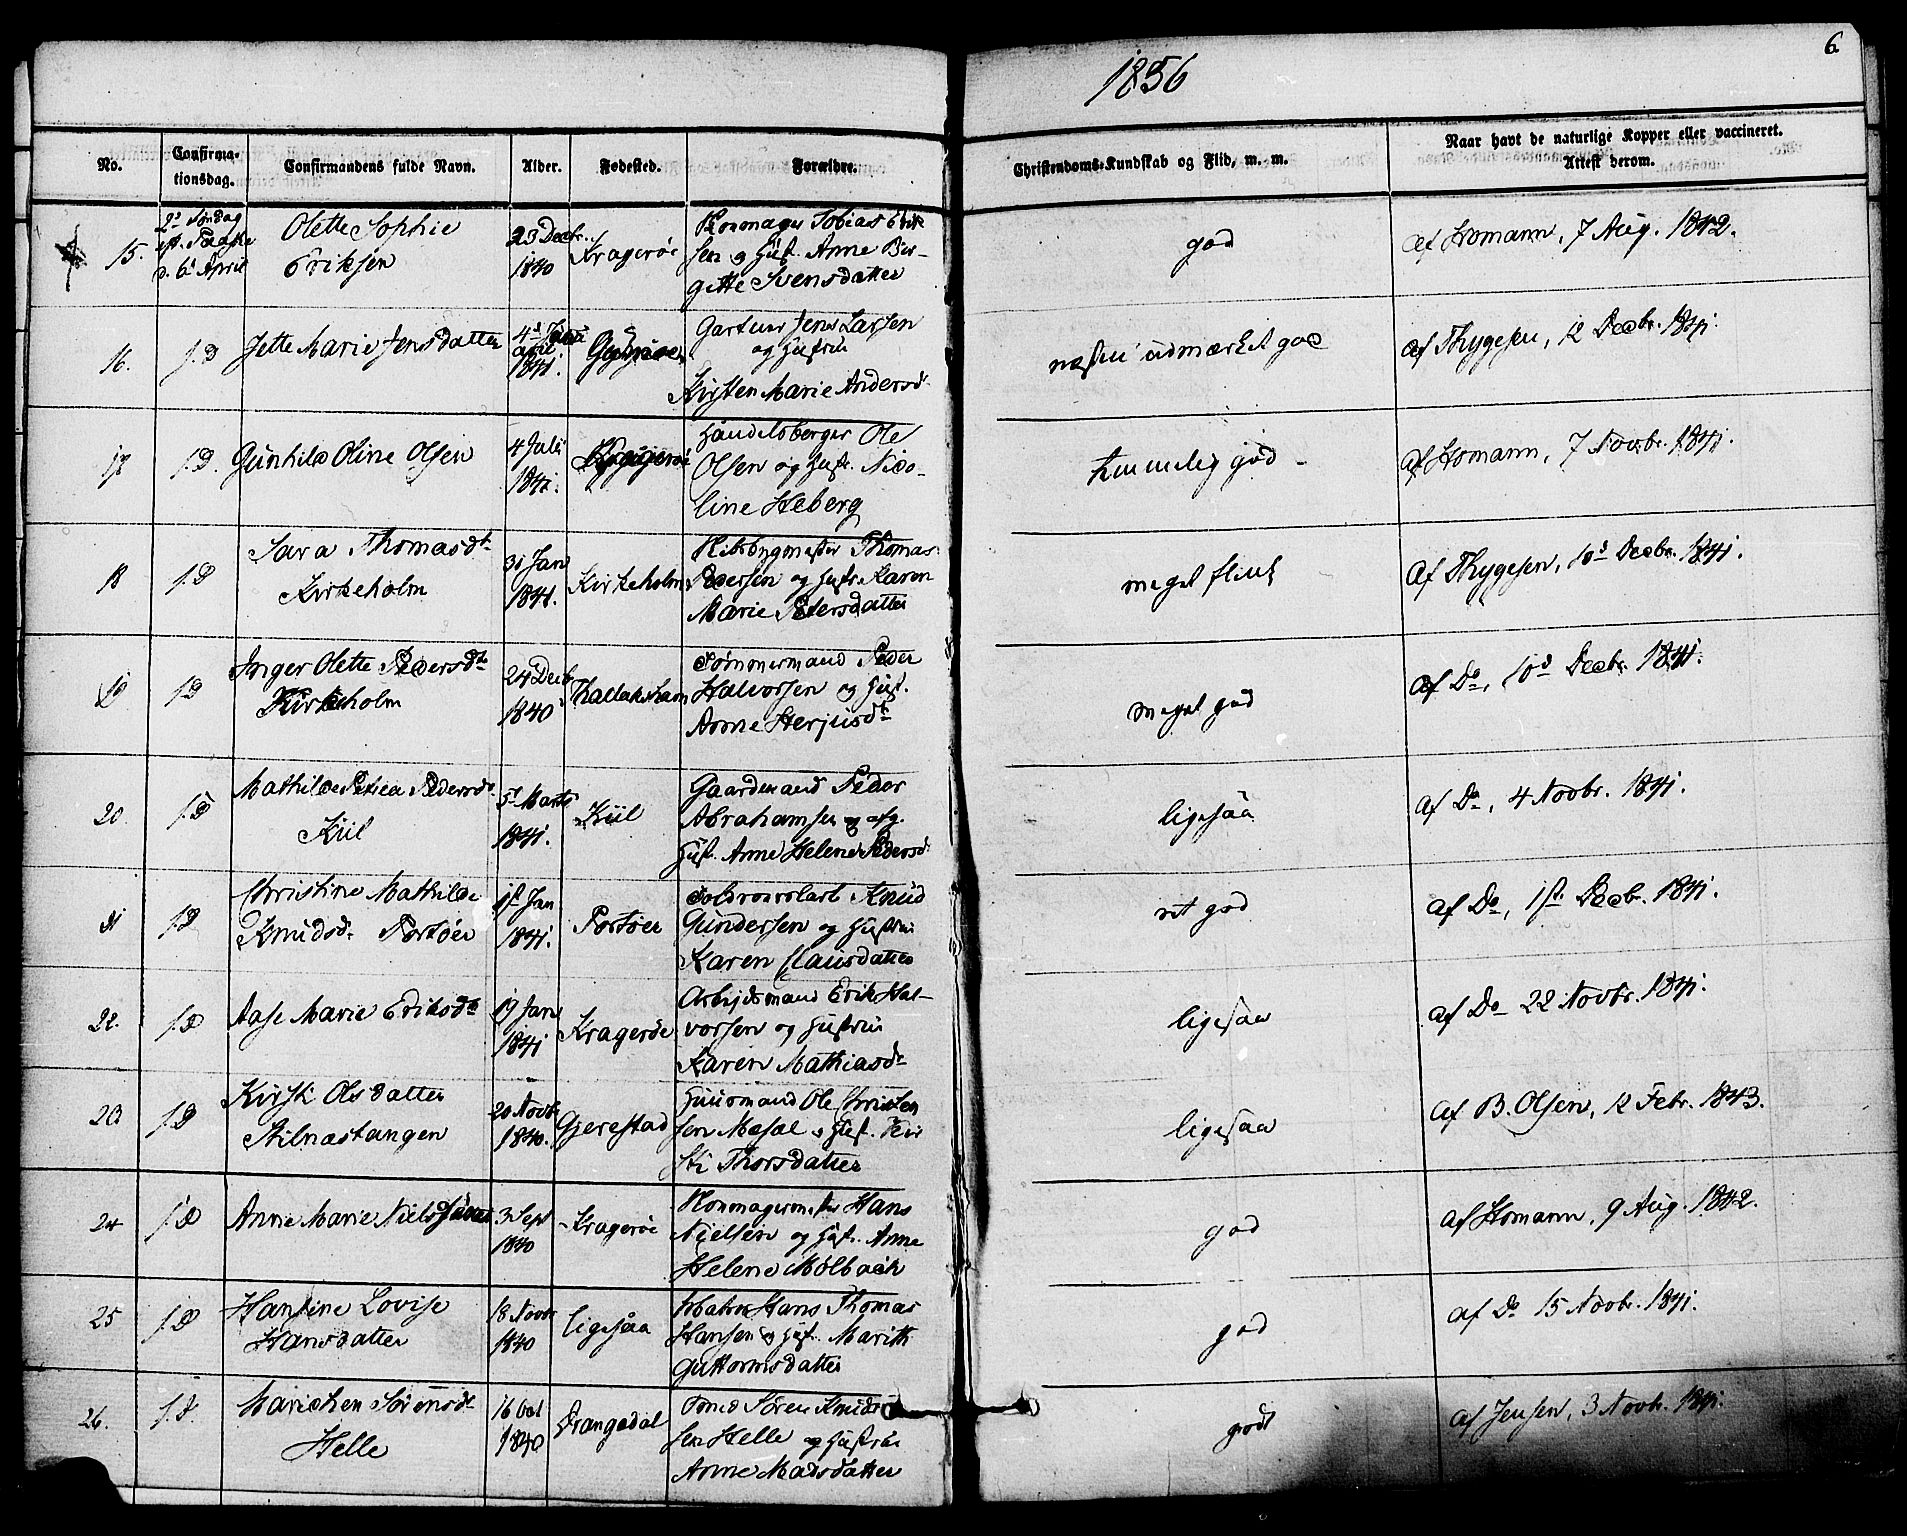 6
1856
No.
Confirma-
tionsdag.
Confirmandens fulde Navn.
Alder.
Fødested.
Forældre.
Christendoms-Kundskab og Flid, m. m.
Naar havt de naturlige Kopper eller vaccineret.
Attest derom.
15.
2d Søndag
eft. Paaske
d. 6 April
Olette Sophie
Eriksen
23 Decbr.
1840
Kragerøe
Tobias Erik
sen og Hust. Anne Bir-
gitte Svensdatter
god
af Homann, 7 Aug. 1842.
16.
1.D
Jette Marie Jensdatter
april.
1841.
Gartner Jens Larsen
og Hustrue
Kirsten Marie Andersd.
næsten udmærket god
af Thygesen, 12 Decbr. 1841.
17
1.D.
Gunhild Oline Olsen
4 Juli
1841.
Kragerøe
Handelsborger Ole
Olsen og Hust. Nico-
line Heberg
temmelig god
af Homann, 7 Novbr. 1841.
18
1.D
Sara Thomasdt.
Kirkeholm
Jan
1841.
Kirkeholm
Thomas
Pedersen og Hust. Karen
Marie Pedersdatter
meget flink
af Thygesen, 10d Decbr. 1841.
19
1.D
Inger Olette Pedersdt
Kirkeholm
24 Decb.
1840
Tømmermand Peder
Halvorsen og Hust.
Anne Herjusdt
meget god
af Do, 10d Decbr. 1841.
20.
1.D
Mathilde Petrea Pedersd.
Kiil
5t Marts
1841.
Kiil
Gaardmand Peder
Abrahamsen og afg.
Hust. Anne Helene Pedersd.
ligesaa
af Do, 4 Novbr. 1841.
21
1.D
Christine Mathilde
Knudsd. Portøer
1st Jan
1841.
Portøer
Knud
Gundersen og Hustrue
Karen Clausdatter
ret god
af Do, 1st. Decbr. 1841.
22.
1.D
Aase Marie Eriksdt
19 Jan
1841
Kragerøe
Arbejdsmand Erik Hal-
vorsen og Hustrue
Karen Mathiasdt
ligesaa
af Do 22 Novbr. 1841.
23
1.D
Kirsti Olsdatter
Stilnæstangen
20 Novb
1840.
Gjerestad
Huusmand Ole Christen
sen Mosal og Hust. Kir
sti Thorsdatter
ligesaa
af B. Olsen, 12 Febr. 1843.
24
1.D
Anne Marie Niels
3 Sept
1840
Kragerøe
Hans
Nielsen og Hust. Anne
Helene Mølbach
god
af Homann, 9 Aug. 1842.
25
1.D
Hansine Lovise
Hansdatter
18 Novbr
1840
ligesaa
Hans Thomas
Hansen og Hust. Marith
Guttormsdatter
god
af Do 15 Novbr. 1841.
26.
1.D.
Marichen Sørensdt
Helle
16 Oct
1840
Drangedal
Søren Knud
sen Helle og Hustrue
Anne Madsdatter
godt
af Jensen, 3 Novbr. 1841.